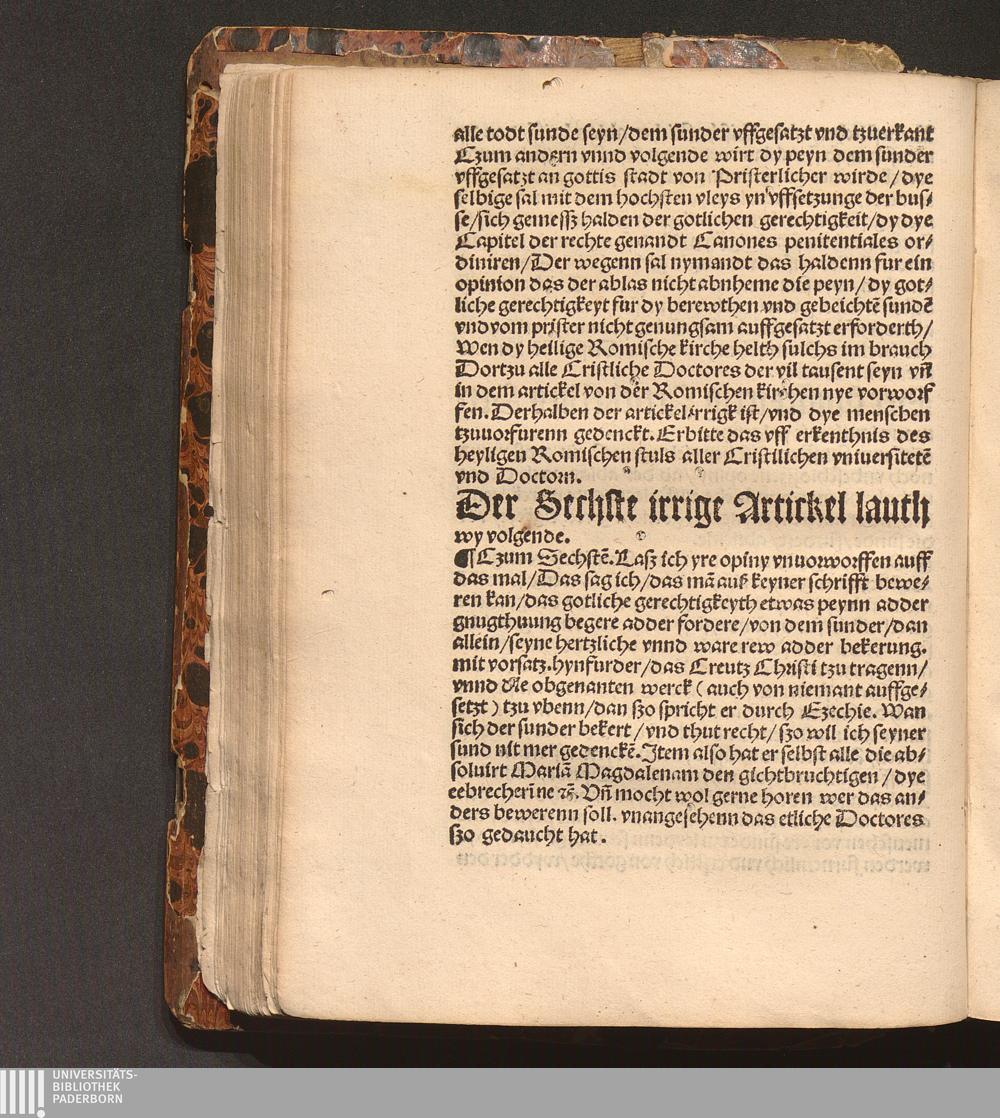 alle todt sunde seyn/dem sunder vffgesatzt vnd tzuerkant
Czum andern vnnd volgende wirt dy peyn dem sunder
vffgesatzt an gottis stadt von Pristerlicher wirde/dye
selbige sal mit dem hochsten vleys yn vffsetzunge der bus-
se/sich gemessz halden der gotlichen gerechtigkeit/dy dye
Capitel der rechte genandt Canones penitentiales or-
diniren/Der wegenn sal nymandt das haldenn fur ein
opinion das der ablas nicht abnheme die peyn/dy got-
liche gerechtigkeyt fur dy berewthen vnd gebeichtē sundē
vnd vom prister nicht genungsam auffgesatzt erforderth/
Wen dy heilige Romische kirche helth sulchs im brauch
Dortzu alle Cristliche Doctores der vil tausent seyn vñ
in dem artickel von der Romischen kirchen nye vorworf
fen. Derhalben der artickel irrigk ist/vnd dye menschen
tzuuorfurenn gedenckt. Erbitte das vff erkenthnis des
heyligen Romischen stuls aller Cristilichen vniuersitetē
vnd Doctorn.
Der Sechste irrige Artickel lauth
wy volgende.
¶Czum Sechstē. Lasz ich yre opiny vnuorworffen auff
das mal/Das sag ich/das mā auß keyner schrifft bewe-
ren kan/das gotliche gerechtigkeyth etwas peynn adder
gnugthuung begere adder fordere/von dem sunder/dan
allein/seyne hertzliche vnnd ware rew adder bekerung.
mit vorsatz. hynfurder/das Creutz Christi tzu tragenn/
vnnd die obgenanten werck (auch von niemant auffge-
setzt) tzu vbenn/dan szo spricht er durch Ezechie. Wan
sich der sunder bekert/vnd thut recht/szo wil ich seyner
sund nit mer gedenckē. Item also hat er selbst alle die ab-
soluirt Mariā Magdalenam den gichtbruchtigen/dye
eebrecherīne ꝛc̄. Vñ mocht wol gerne horen wer das an-
ders bewerenn soll. vnangesehenn das etliche Doctores
szo gedaucht hat.
UNIVERSITÄTS-
BIBLIOTHEK
PADERBORN